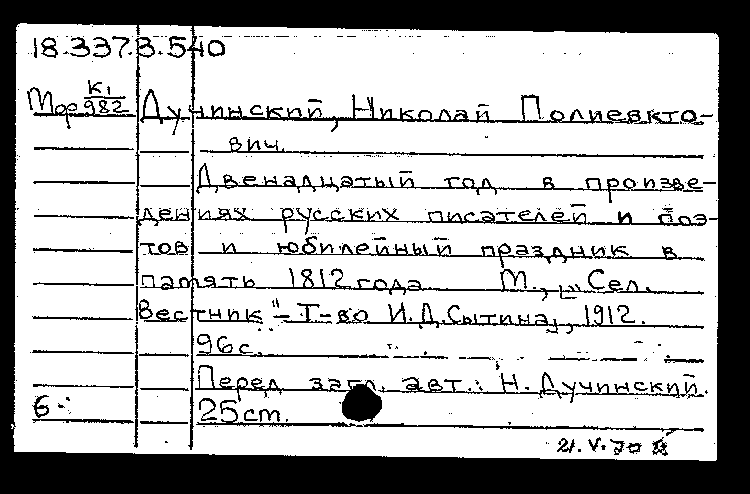 18.337.3.540
Мор К1/982 Дучинский, Николай Полиевкто-
вич.
Двенадцатый год в произве-
дениях русских писателей и поэ-
тов и юбилейный праздник в
память 1812 года М., „Сел.
Вестник"-Т-во И.Д.Сытина, 1912.
96с.
Перед загл. авт.: Н. Дучинский.
6- 25 см.
21.V.70